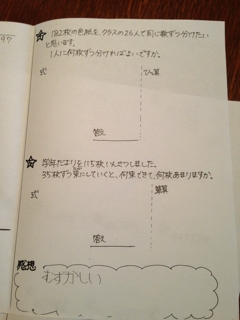 182枚の色紙を、クラスの26人で同じ数ずつ分けたい
と思います。
1人に何枚ずつ分ければよいですか。
式
ひっ算
答え
学年だよりを115枚いんさつしました。
35枚ずつ束にしていくと、何束できて、何枚あまりますか。
式
筆算
答え
感想
むずかしい